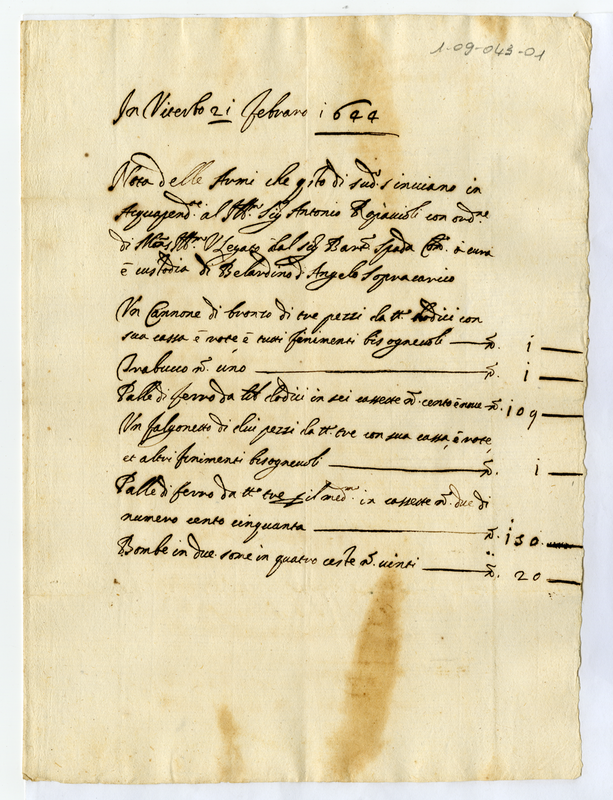 1-09-043-01
In Viterbo 21 febraro 1644
Nota delle Armi che q.sto di sud.o s'inviano in
Acquapend.te al Ill.re Sig. Antonio con ord.ne
di Mons. Ill.mo V. Legato dal sig. Bart. Spada a cura
è custodia di Belardino d'Angelo Sopracarico
Un Cannone di bronzo di tre pezzi da tt.e dodici con
sua cassa è rote è tutti finimenti bisognevoli — n. 1
Trabucco n. uno — n. 1
Palle di ferro da tt.e dodici in sei cassette n. cento è nove n. 109
Un falconetto di dui pezzi da tt.e tre con sua cassa è rote,
et altri finimenti bisognevoli — n. 1
Palle di ferro da tt.e tre p il med.mo in cassette n. due di
numero cento cinquanta — n. 150
Bombe in due some in quatro ceste n. vinti — n. 20